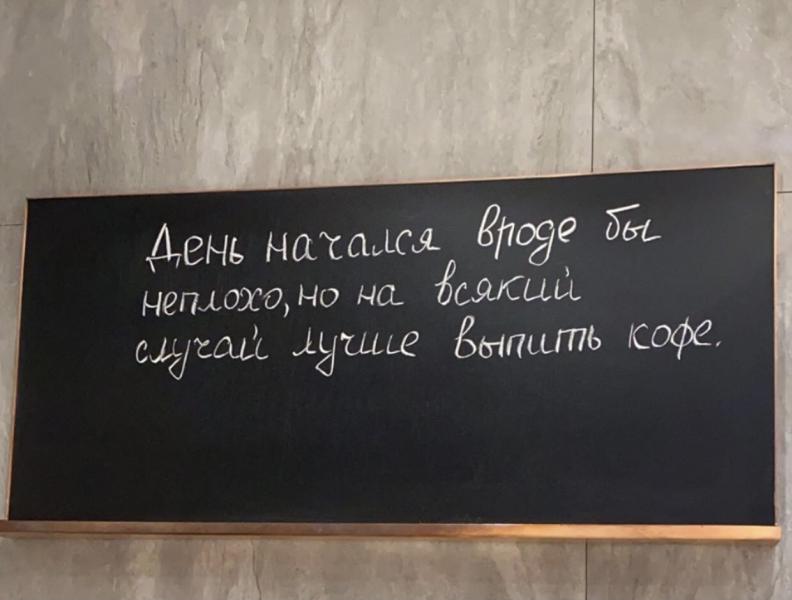 День начался вроде бы
неплохо, но на всякий
случай лучше выпить кофе.